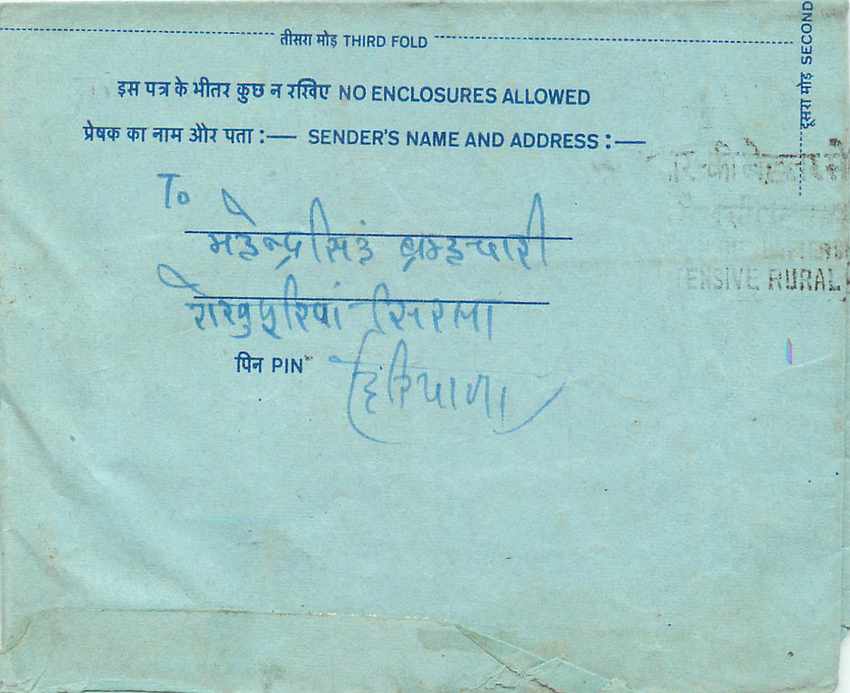 तीसरा मोड़ THIRD FOLD
दूसरा मोड़ SECOND
इस पत्र के भीतर कुछ न रखिए NO ENCLOSURES ALLOWED
प्रेषक का नाम और पता :— SENDER'S NAME AND ADDRESS :—
To
महेन्द्र सिंह ब्रम्हचारी
शेखुपुरियां सिरसा
पिन PIN
हरियाणा
RURAL